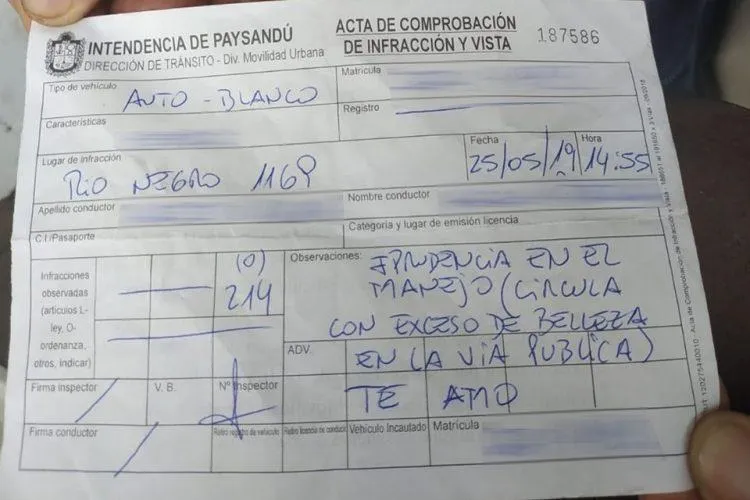 INTENDENCIA DE PAYSANDÚ
DIRECCIÓN DE TRÁNSITO - Div. Movilidad Urbana
ACTA DE COMPROBACIÓN
DE INFRACCIÓN Y VISTA
187586
Tipo de vehículo
AUTO - BLANCO
Matrícula
Características
Registro
Lugar de infracción
RIO NEGRO 1169
Fecha
25/05/19
Hora
14:55
Apellido conductor
Nombre conductor
C.I./Pasaporte
Categoria y lugar de emisión licencia
Infracciones
observadas
(artículos L-
ley, O-
ordenanza,
otros, indicar)
(O)
214
Observaciones:
IPRUDENCIA EN EL
MANEJO (CIRCULA
CON EXCESO DE BELLEZA
EN LA VIA PUBLICA)
TE AMO
ADV.
Firma inspector
V. B.
Nº Inspector
Firma conductor
Retiró registro de vehículo
Retiro licencia de conducir
Vehículo Incautado
Matrícula